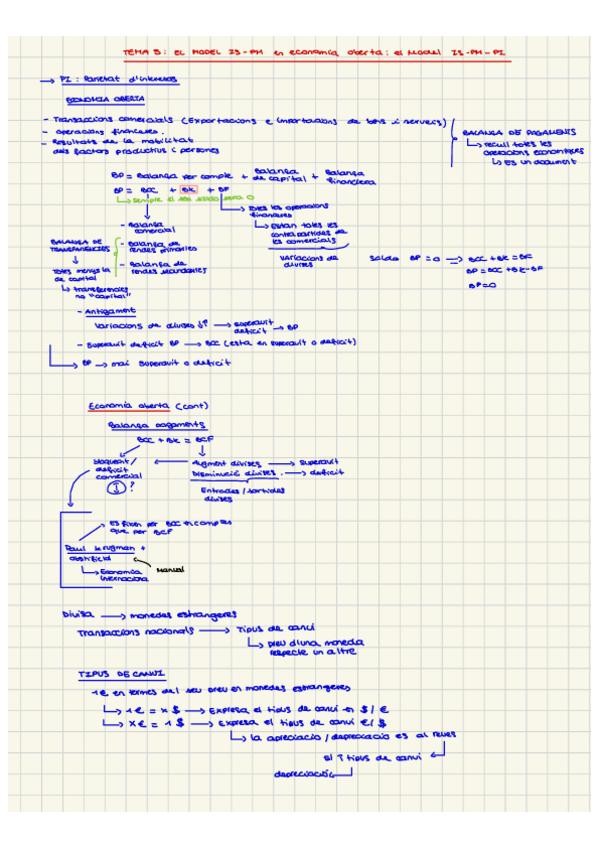 TEMA 5: EL MODEL IS-PM en economía oberta: el Model IS-PM-PI
→ PI: Paritat d'interesos
ECONOMIA OBERTA
- Transaccions comercials (Exportacions e importacions de béns i serveis)
- operacions financeres.
- Resultats de la mobilitat
dels factors productius i persones
BALANÇA DE PAGAMENTS
↳ recull totes les
operacions econòmiques
↳ És un document
BP = Balança per compte + Balança de capital + Balança financera
BP = BCC + BK + BF
↳ sempre el seu saldo serà 0
↳ Totes les operacions
financeres
↳ Estan totes les
contrapartides de
les comercials
- Balança
comercial
- Balança de
rendes primàries
- Balança de
rendes secundàries
BALANÇA DE
TRANSFERÈNCIES
↓
Totes menys la
de capital
↳ transferències
no "capital"
variacions de
divises
Saldo BP = 0 → BCC + BK = BF
BP = BCC + BK - BF
BP = 0
- Antigament
Variacions de divises ↓↑ → superàvit
dèficit → BP
- Superàvit dèficit BP → BCC (està en superàvit o dèficit)
↳ BP → mai superàvit o dèficit
Economía oberta (cont)
Balança pagaments
BCC + BK = BCF
superàvit/
dèficit
comercial
?
← Augment divises → superàvit
Disminució divises → dèficit
Entrades / sortides
divises
Es fixen per BCC en comptes
que per BCF
Paul Krugman +
obstfeld
↳ Economía
internacional
Manual
Divisa → monedes estrangeres
Transaccions nacionals → Tipus de canvi
↳ preu d'una moneda
respecte un altre
TIPUS DE CANVI
1€ en termes del seu preu en monedes estrangeres
↳ 1€ = x $ → Expresa el tipus de canvi en $ / €
↳ X€ = 1 $ → Expresa el tipus de canvi €/$
↳ la apreciació / depreciació es al revés
si ↑ tipus de canvi ↵
depreciació ↵